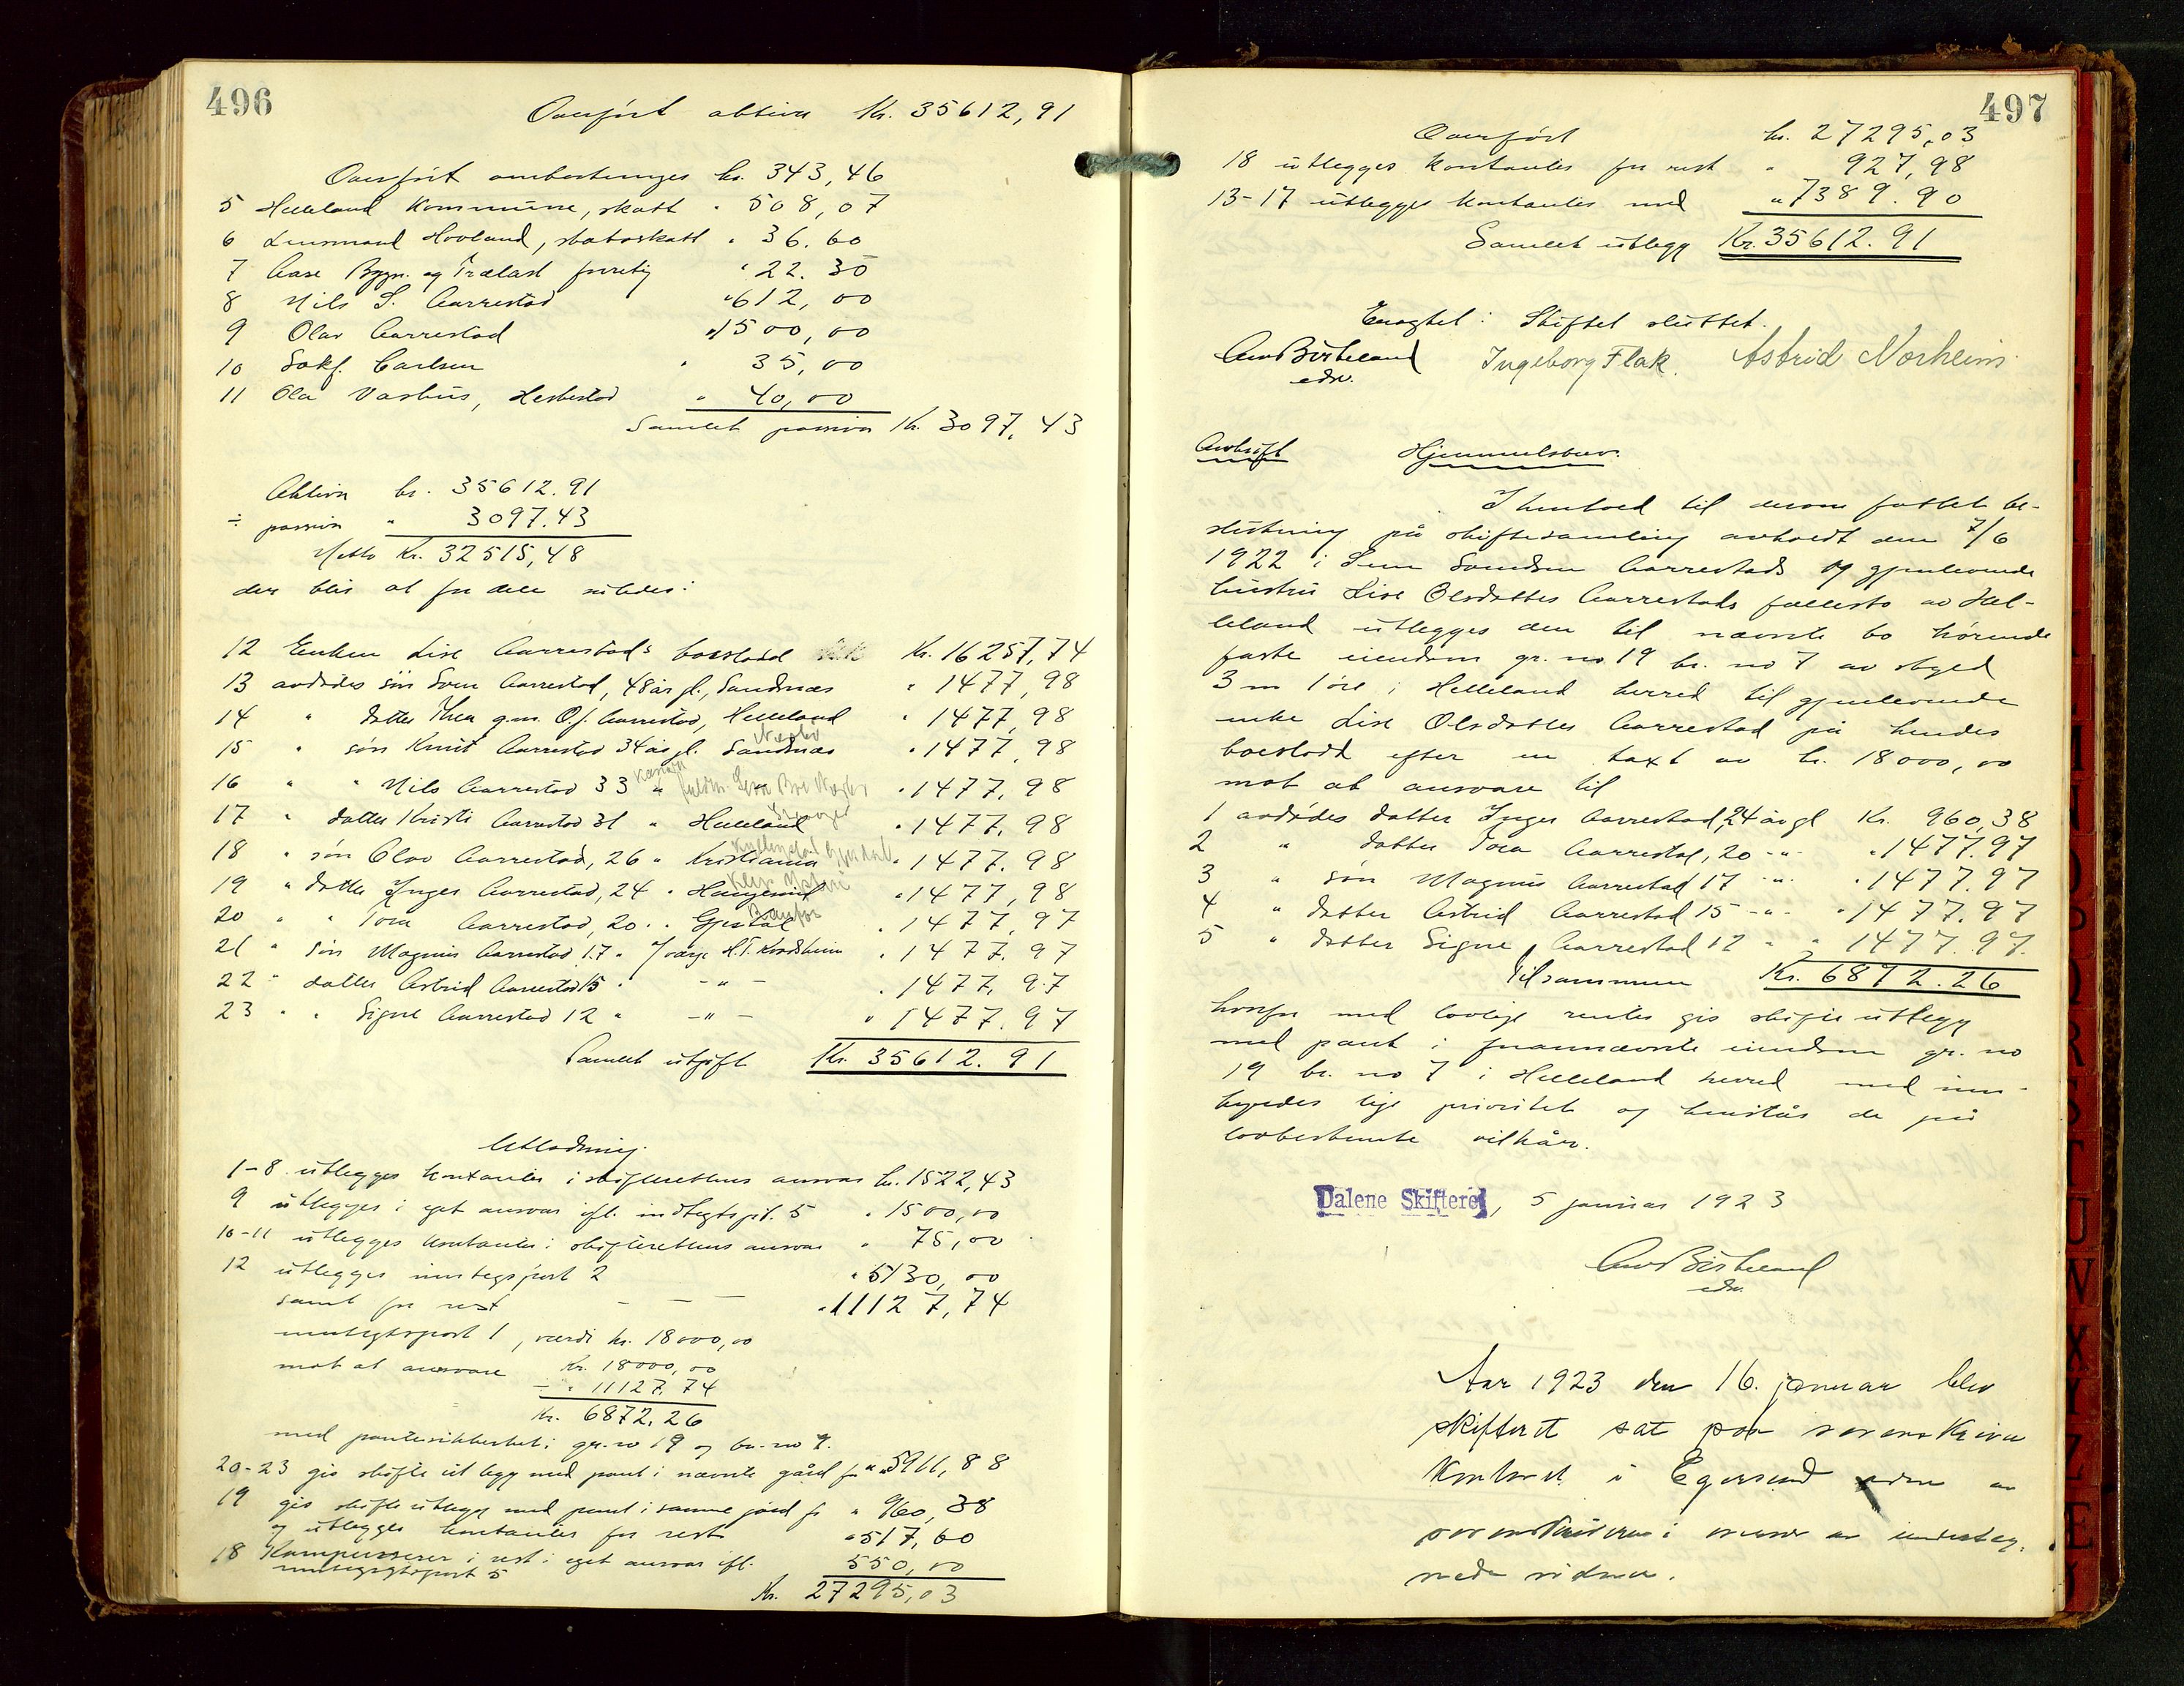 496
Overført aktiva Kr. 35612,91
Overført omkostninger kr. 343,46
5 Helleland kommune, skatt " 508,07
6 Lensmand Hovland, statsskatt " 36.60
7 Aase Bygn. og Trælast forretn " 22.30
8 Nils S. Aarrestad " 612,00
9 Olav Aarrestad " 1500,00
10 Sakf. Carlsen " 35,00
11 Ola Vashus, Heskestad " 40,00
Samlet passiva Kr. 3097,43
Aktiva kr. 35612.91
÷ passiva " 3097.43
Netto Kr. 32515,48
der blir at fordele således:
12 Enken Lise Aarrestads boeslodd Kr. 16257,74
13 avdødes søn Sven Aarrestad, 48 år gl., Sandnes " 1477,98
14 " datter Thea g.m. O.J. Aarrestad, Helleland " 1477,98
15 " søn Knut Aarrestad 34 år gl. Sandnes " 1477,98
16 " " Nils Aarrestad 33 " Kanada " 1477,98
17 " datter Kristi Aarrestad 31 " Helleland " 1477,98
18 " søn Olav Aarrestad, 26 " Kristiania " 1477.98
19 " datter Inger Aarrestad, 24 " Haugesund " 1477,98
20 " " Tora Aarrestad, 20 " Gjesdal " 1477,97
21 " søn Magnus Aarrestad 17 " v/verge H.T. Kvadsheim " 1477,97
22 " datter Astrid Aarrestad 15 " - " - " 1477,97
23 " " Signe Aarrestad 12 " - " - " 1477.97
Samlet utgift Kr. 35612.91
Utlodning.
1-8 utlegges kontanter i skifterettens ansvar kr. 1522,43
9 utlegges i eget ansvar ifl. indtegtspt. 5 " 1500,00
10-11 utlegges kontanter i skifterettens ansvar " 75,00
12 utlegges inntegtspost 2 " 5130,00
samt for rest - - - " 11127,74
inntegtspost 1, værdi kr. 18000,00
mot at ansvare Kr. 18000,00
- " 11127,74
Kr. 6872,26
med pantesikkerhet i gr. no 19 og br. no 7.
20-23 gis skifteutlegg med pant i nævnte gård for " 5911,88
19 gis skifteutlegg med pant i samme jord for " 960,38
og utlegges kontanter for rest " 517,60
18 Kompenserer i rest i eget ansvar ifl.
inntegtspost 5 550,00
Kr. 27295,03
497
Overført kr. 27295,03
18 utlegges kontanter for rest " 927,98
13-17 utlegges kontanter med " 7389.90
Samlet utlegg Kr. 35612.91
Enogtet: Skiftet sluttet.
Aw Birkeland Ingeborg Flak. Astrid Norheim.
edsv.
Avskrift Hjemmelsbrev.
I henhold til derom fattet be-
slutning på skiftesamling avholdt den 7/6
1922 i Sven Svendsen Aarrestads og gjenlevende
hustru Lise Olsdatter Aarrestads fællesbo av Hel-
leland utlegges den til nævnte bo hørende
faste eiendom gr. no. 19 br. no 7 av skyld
3 m 1 øre i Helleland herred til gjenlevende
enke Lise Olsdatter Aarrestad på hendes
boeslodd efter en taxt av kr. 18000,00
mot at ansvare til
1 avdødes datter Inger Aarrestad, 24 år gl Kr. 960,38
2 " datter Tora Aarrestad, 20 - " - " 1477.97
3 " søn Magnus Aarrestad 17 - " - " 1477.97
4 " datter Astrid Aarrestad 15 - " - " 1477.97
5 " datter Signe Aarrestad 12 " " 1477.97.
Tilsammen Kr. 6872.26
hvorfor med lovlige renter gis skifteutlegg
med pant i foranævnte eiendom gr. no
19 br. no 7 i Helleland herred med inn-
byrdes lige prioritet og henstår de på
lovbestemte vilkår.
Dalene Skifteret, 5 januar 1923
Aw Birkeland
edsv.
Aar 1923 den 16. januar blev
skifteret sat paa sorenskriver
kontoret i Egersund
sorenskriveren i nærvær av underteg-
nede vidner.